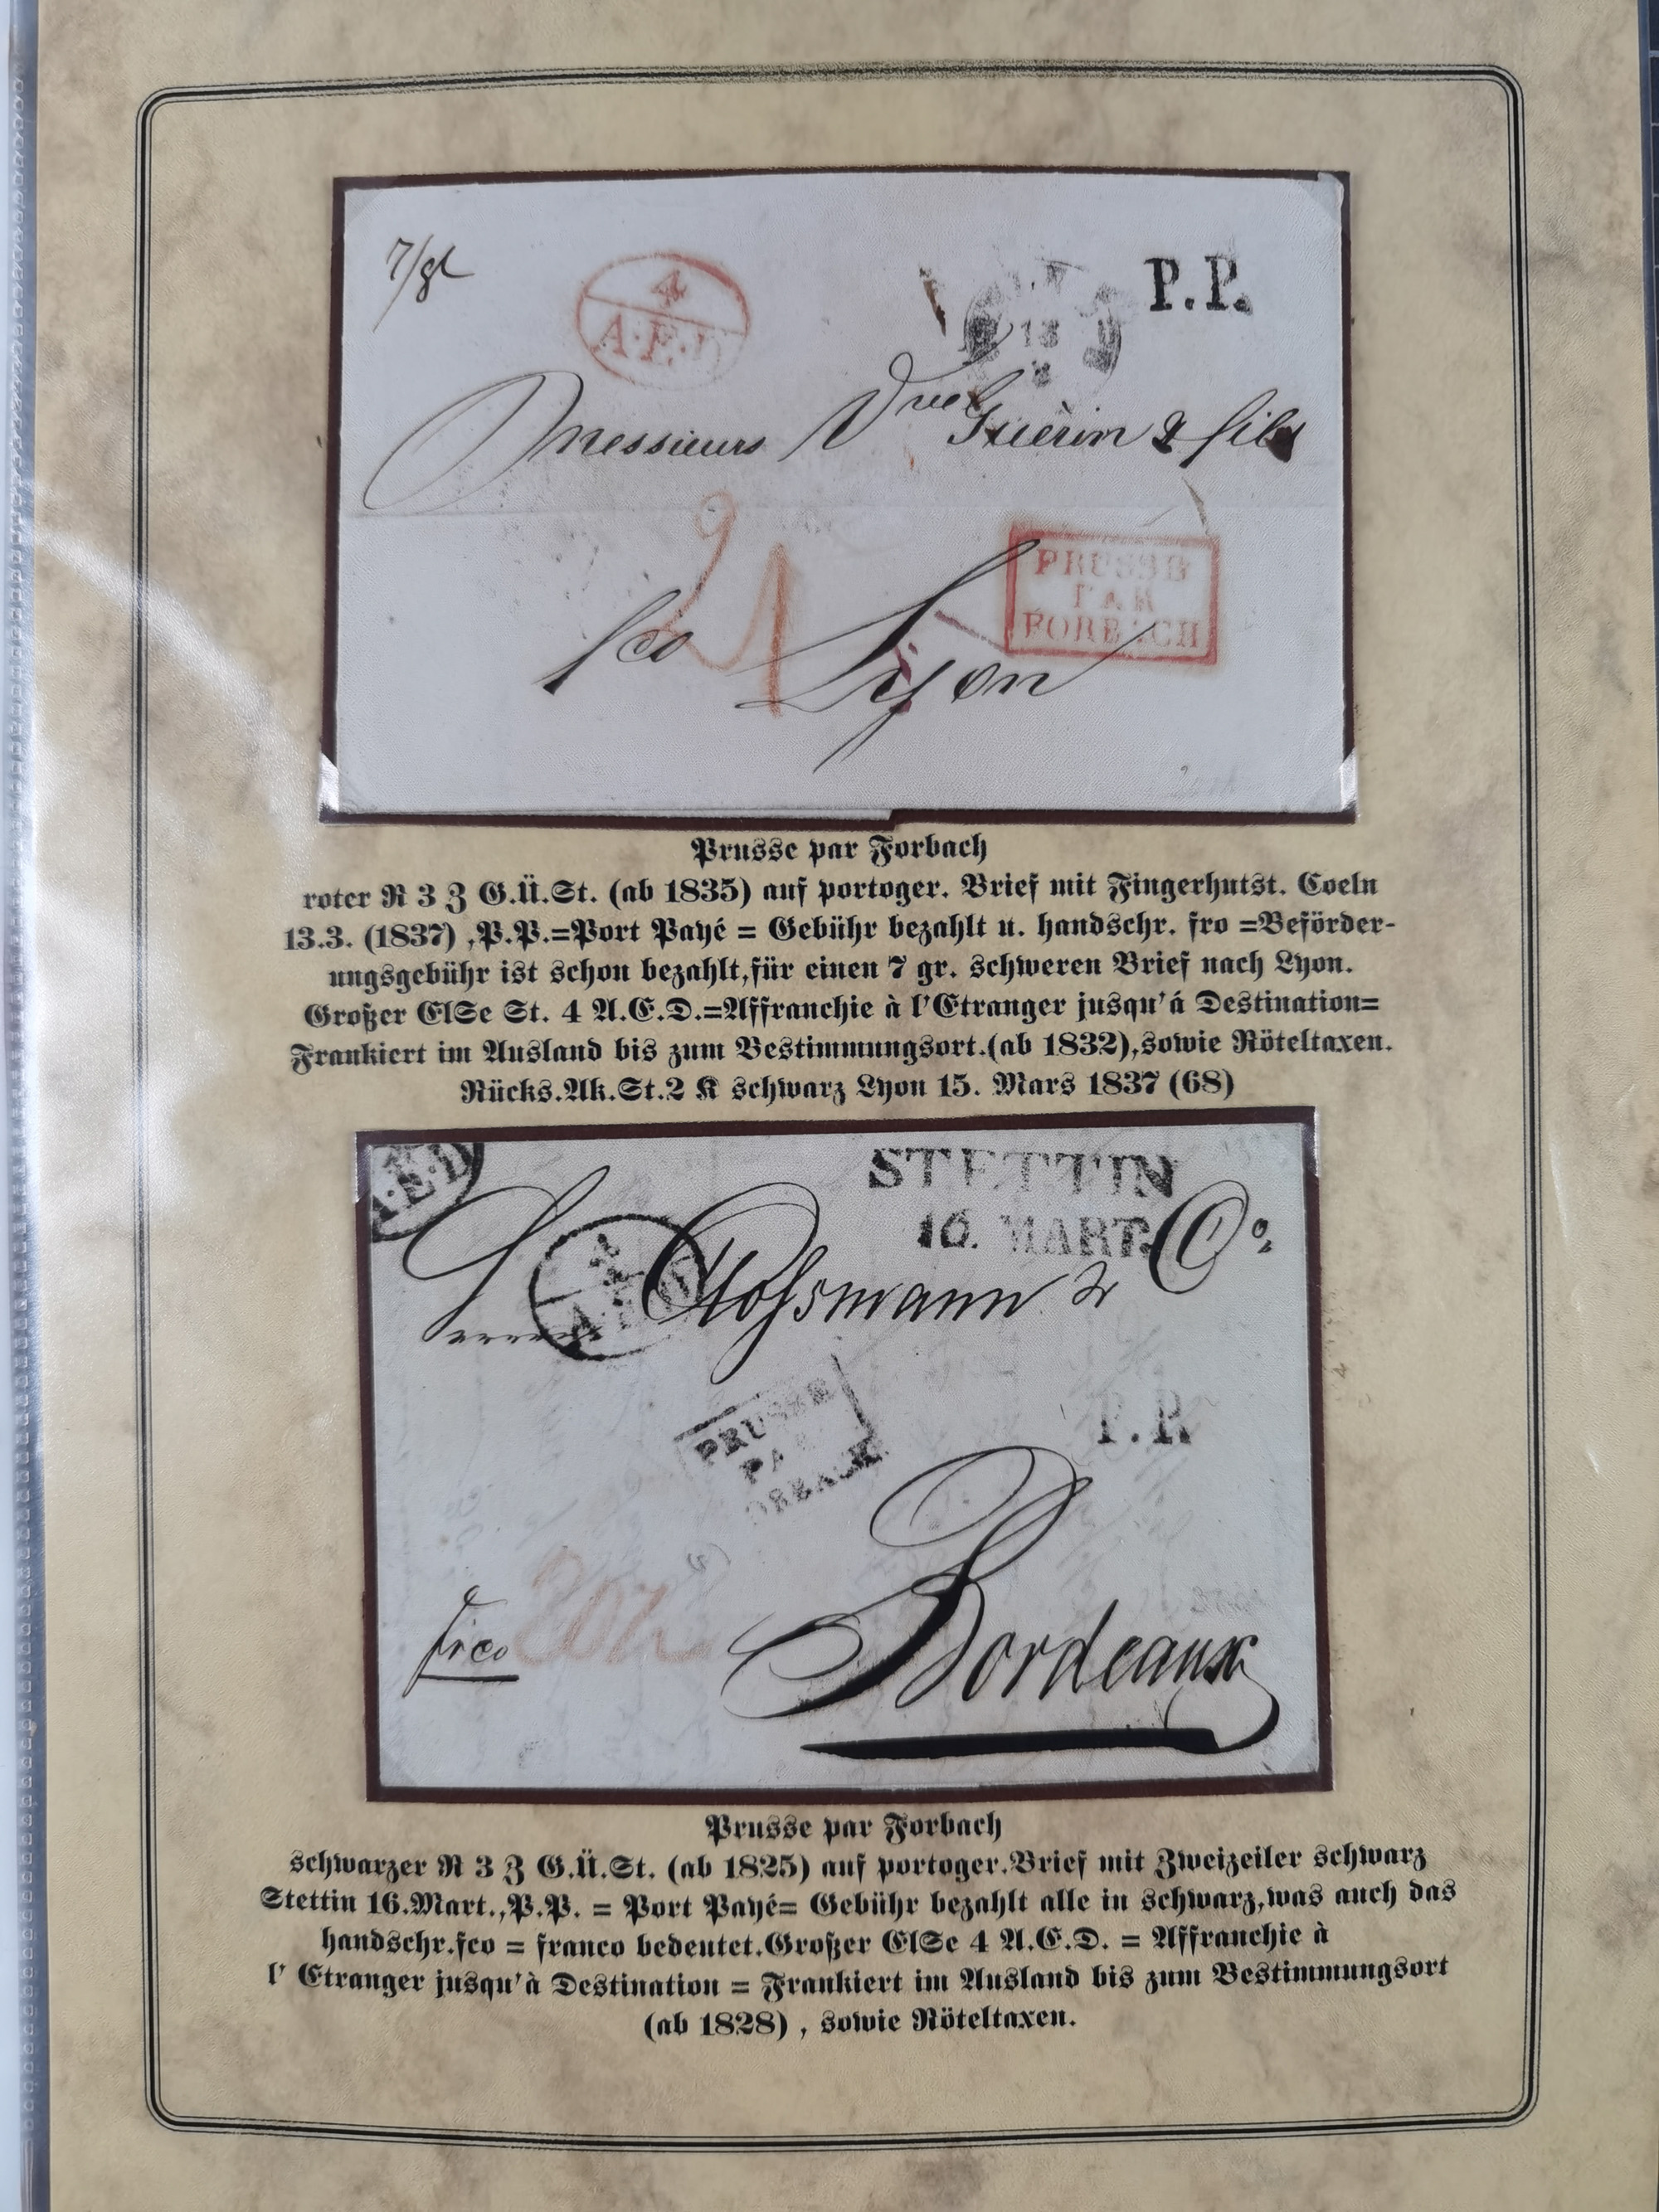 7/gl
4
A.E.D
13
3
P.P.
Messieurs Vve Guèrin & fils
PRUSSE
PAR
FORBACH
fco Lyon
Prusse par Forbach
roter R 3 Z G.Ü.St. (ab 1835) auf portoger. Brief mit Fingerhutst. Coeln
13.3. (1837) ,P.P.=Port Payé = Gebühr bezahlt u. handschr. fro =Beförder-
ungsgebühr ist schon bezahlt,für einen 7 gr. schweren Brief nach Lyon.
Großer ElSe St. 4 A.E.D.=Affranchie à l'Etranger jusqu'á Destination=
Frankiert im Ausland bis zum Bestimmungsort.(ab 1832),sowie Röteltaxen.
Rücks.Ak.St.2 K schwarz Lyon 15. Mars 1837 (68)
A.E.D
STETTIN
16. MART.
& Co.
4
PRUSSE
PAR
ORBACH
P.P.
frco
Bordeaux
Prusse par Forbach
schwarzer R 3 Z G.Ü.St. (ab 1825) auf portoger.Brief mit Zweizeiler schwarz
Stettin 16.Mart.,P.P. = Port Payé= Gebühr bezahlt alle in schwarz,was auch das
handschr.fco = franco bedeutet.Großer ElSe 4 A.E.D. = Affranchie à
l' Etranger jusqu'à Destination = Frankiert im Ausland bis zum Bestimmungsort
(ab 1828) , sowie Röteltaxen.